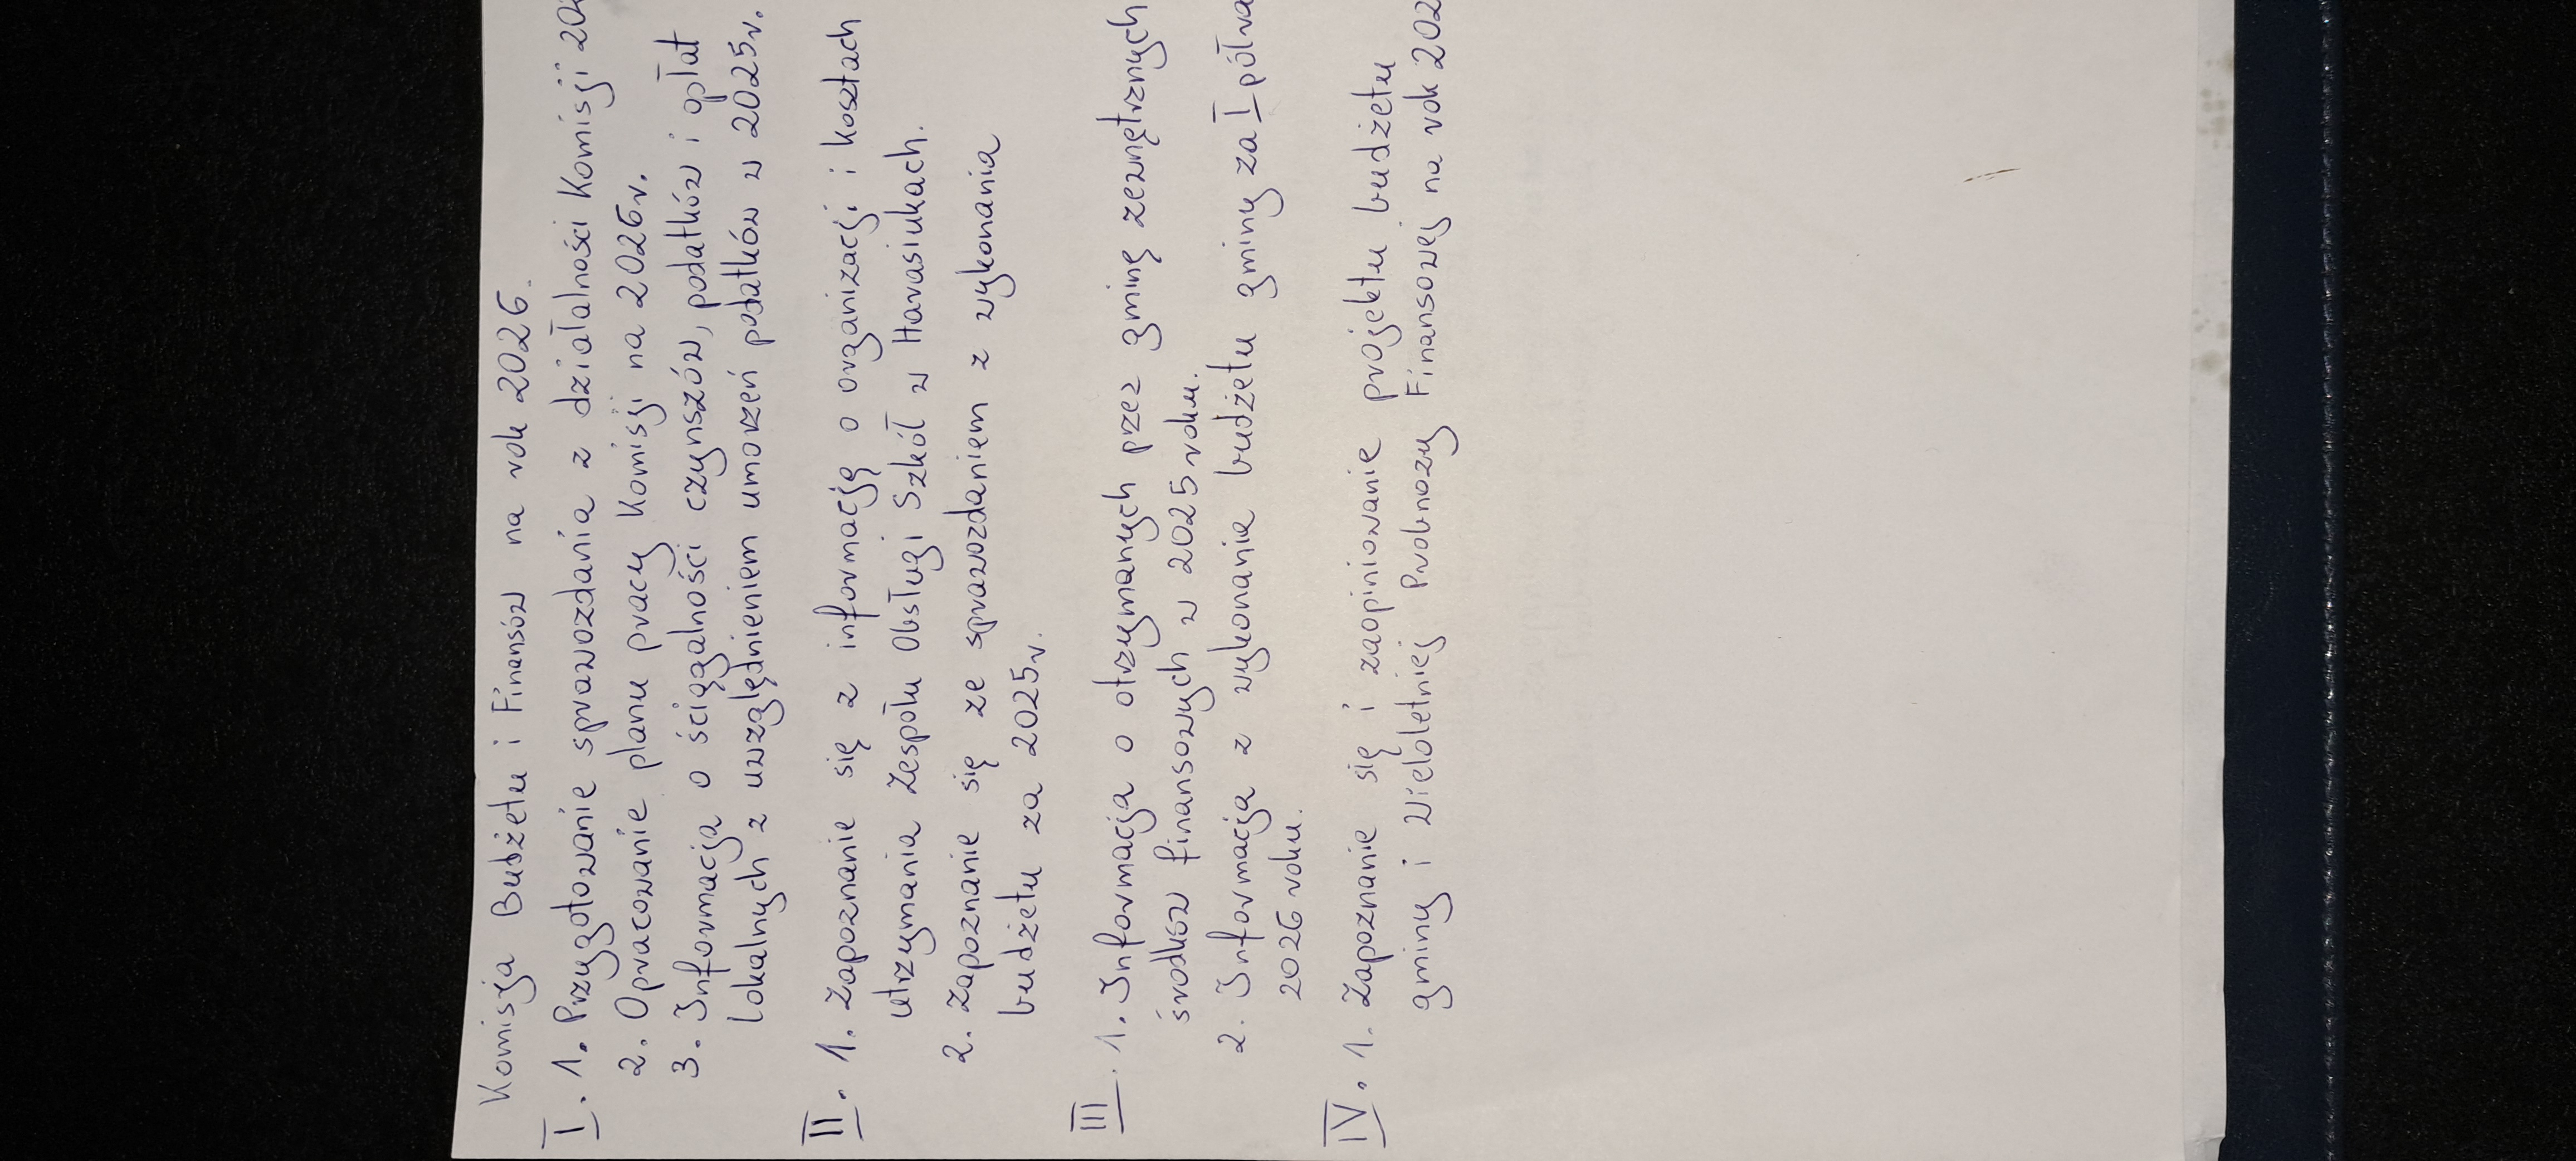 Komisja Budżetu i Finansów na rok 2026.
I. 1. Przygotowanie sprawozdania z działalności Komisji
2. Opracowanie planu pracy Komisji na 2026r.
3. Informacja o ściągalności czynszów, podatków i opłat
lokalnych z uwzględnieniem umorzeń podatków w 2025r.
II. 1. Zapoznanie się z informacją o organizacji i kosztach
utrzymania Zespołu Obsługi Szkół w Harasiukach.
2. Zapoznanie się ze sprawozdaniem z wykonania
budżetu za 2025r.
III. 1. Informacja o otrzymanych przez gminę zewnętrznych
środków finansowych w 2025 roku.
2. Informacja z wykonania budżetu gminy za I
2026 roku.
IV. 1. Zapoznanie się i zaopiniowanie projektu budżetu
gminy i Wieloletniej Prognozy Finansowej na rok